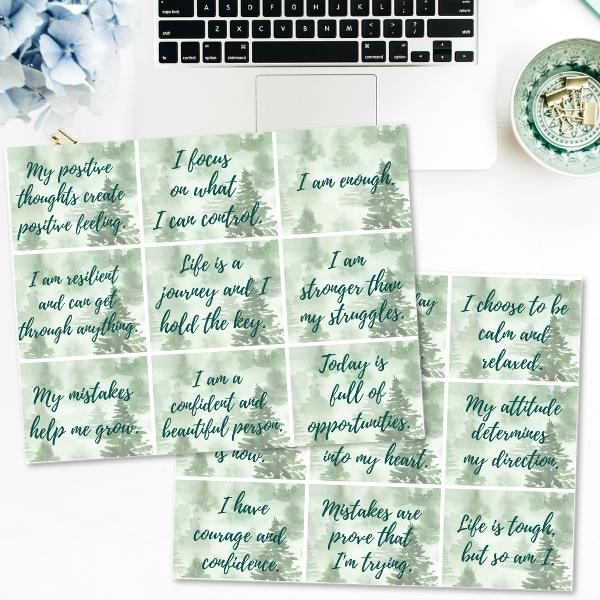 My positive
thoughts create
positive feeling.
I focus
on what
I can control.
I am enough.
I am resilient
and can get
through anything.
Life is a
journey and I
hold the key.
I am
stronger than
my struggles.
My mistakes
help me grow.
I am a
confident and
beautiful person.
Today is
full of
opportunities.
I choose to be
calm and
relaxed.
is now.
into my heart.
My attitude
determines
my direction.
I have
courage and
confidence.
Mistakes are
prove that
I'm trying.
Life is tough,
but so am I.